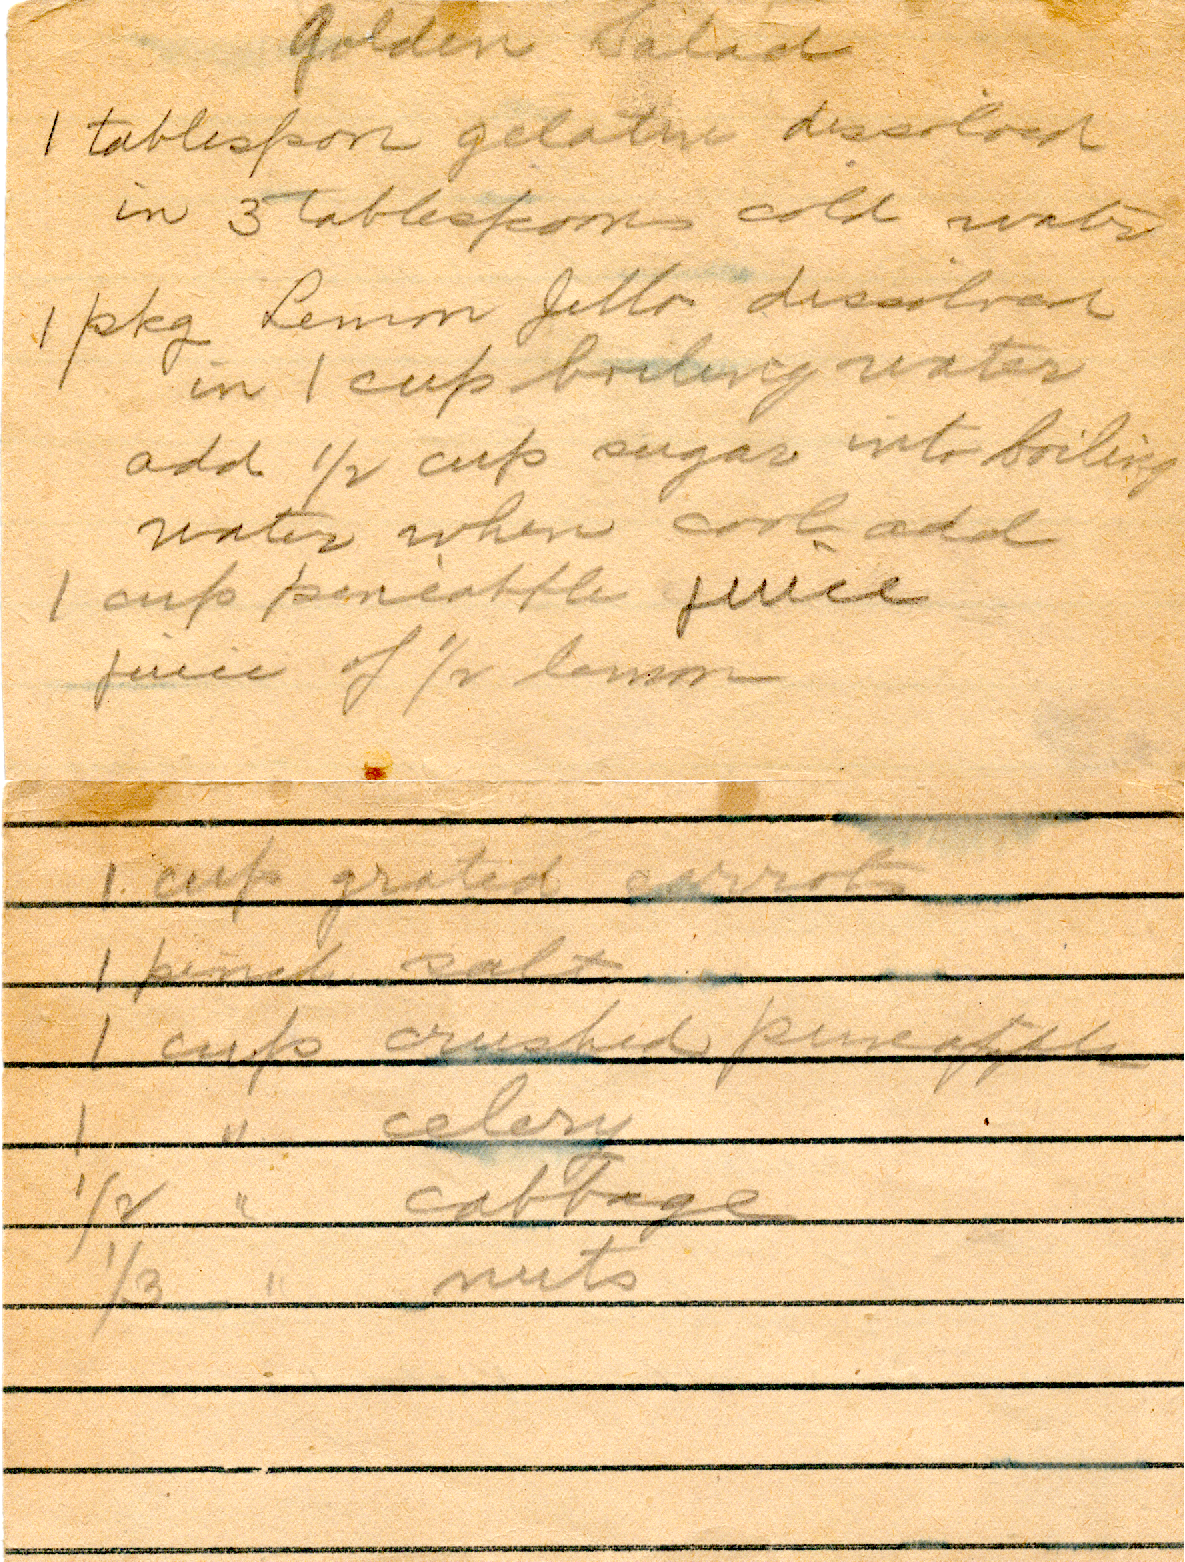 Golden Salad
1 tablespoon gelatine dissolved
in 3 tablespoons cold water
1 pkg Lemon Jello dissolved
in 1 cup boiling water
add 1/2 cup sugar into boiling
water when cool add
1 cup pineapple juice
juice of 1/2 lemon
1 cup grated carrots
1 pinch salt
1 cup crushed pineapple
1 " celery
1/2 " cabbage
1/3 " nuts